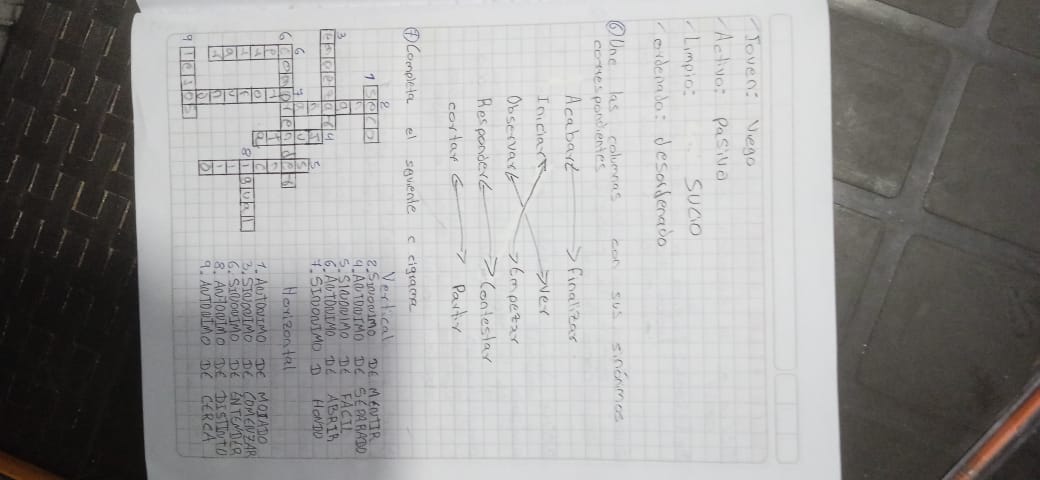 Joven: Viego
Activo: pasivo
Limpio: sucio
ordenado: desordenado
⑥ Une las columnas con sus sinónimos
correspondientes
Acabar Finalizar
Iniciar Ver
Observar Empezar
Responder Contestar
cortar Partir
⑦ Completa el
Vertical
2. SINONIMO DE MENTIR
4. ANTONIMO DE SEPARADO
5. SINONIMO DE FACIL
6. ANTONIMO DE ABRIR
7. SINONIMO D HONDO
Horizontal
1. ANTONIMO DE MOJADO
3. SINONIMO DE COMENZAR
6. SINONIMO DE ENTENDER
8. ANTONIMO DE DISTINTO
9. ANTONIMO DE CERCA
1 seco
6 comprender
8 igual
9 lejos